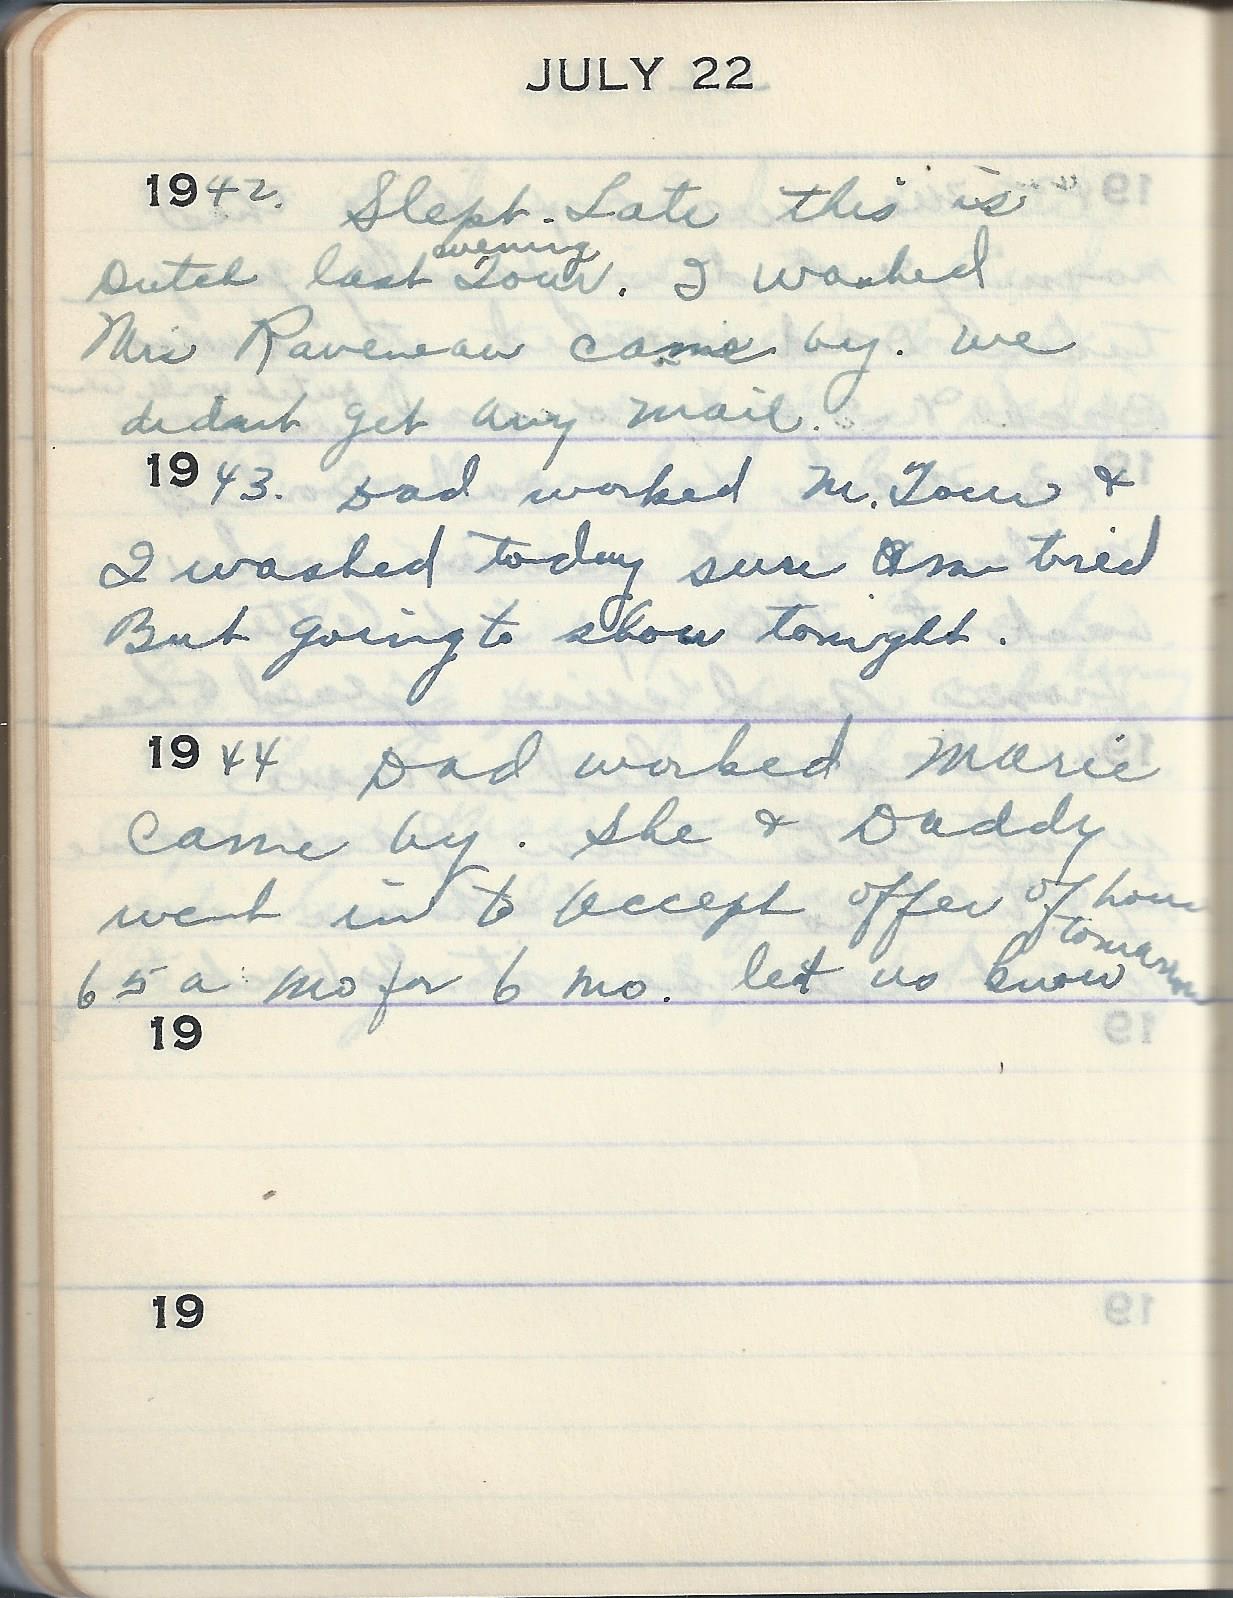 JULY 22
1942. Slept. Late this is
evening
Dutch last Tour. I washed
Mrs Raveneau came by. we
didnt get any mail.
1943. Dad worked M. Tour &
I washed today sure am tried
But going to show tonight.
1944 Dad worked Marie
came by. She & Daddy
went in to accept offer of house
tomarrow
65 a mo for 6 mo. let us know
19
19